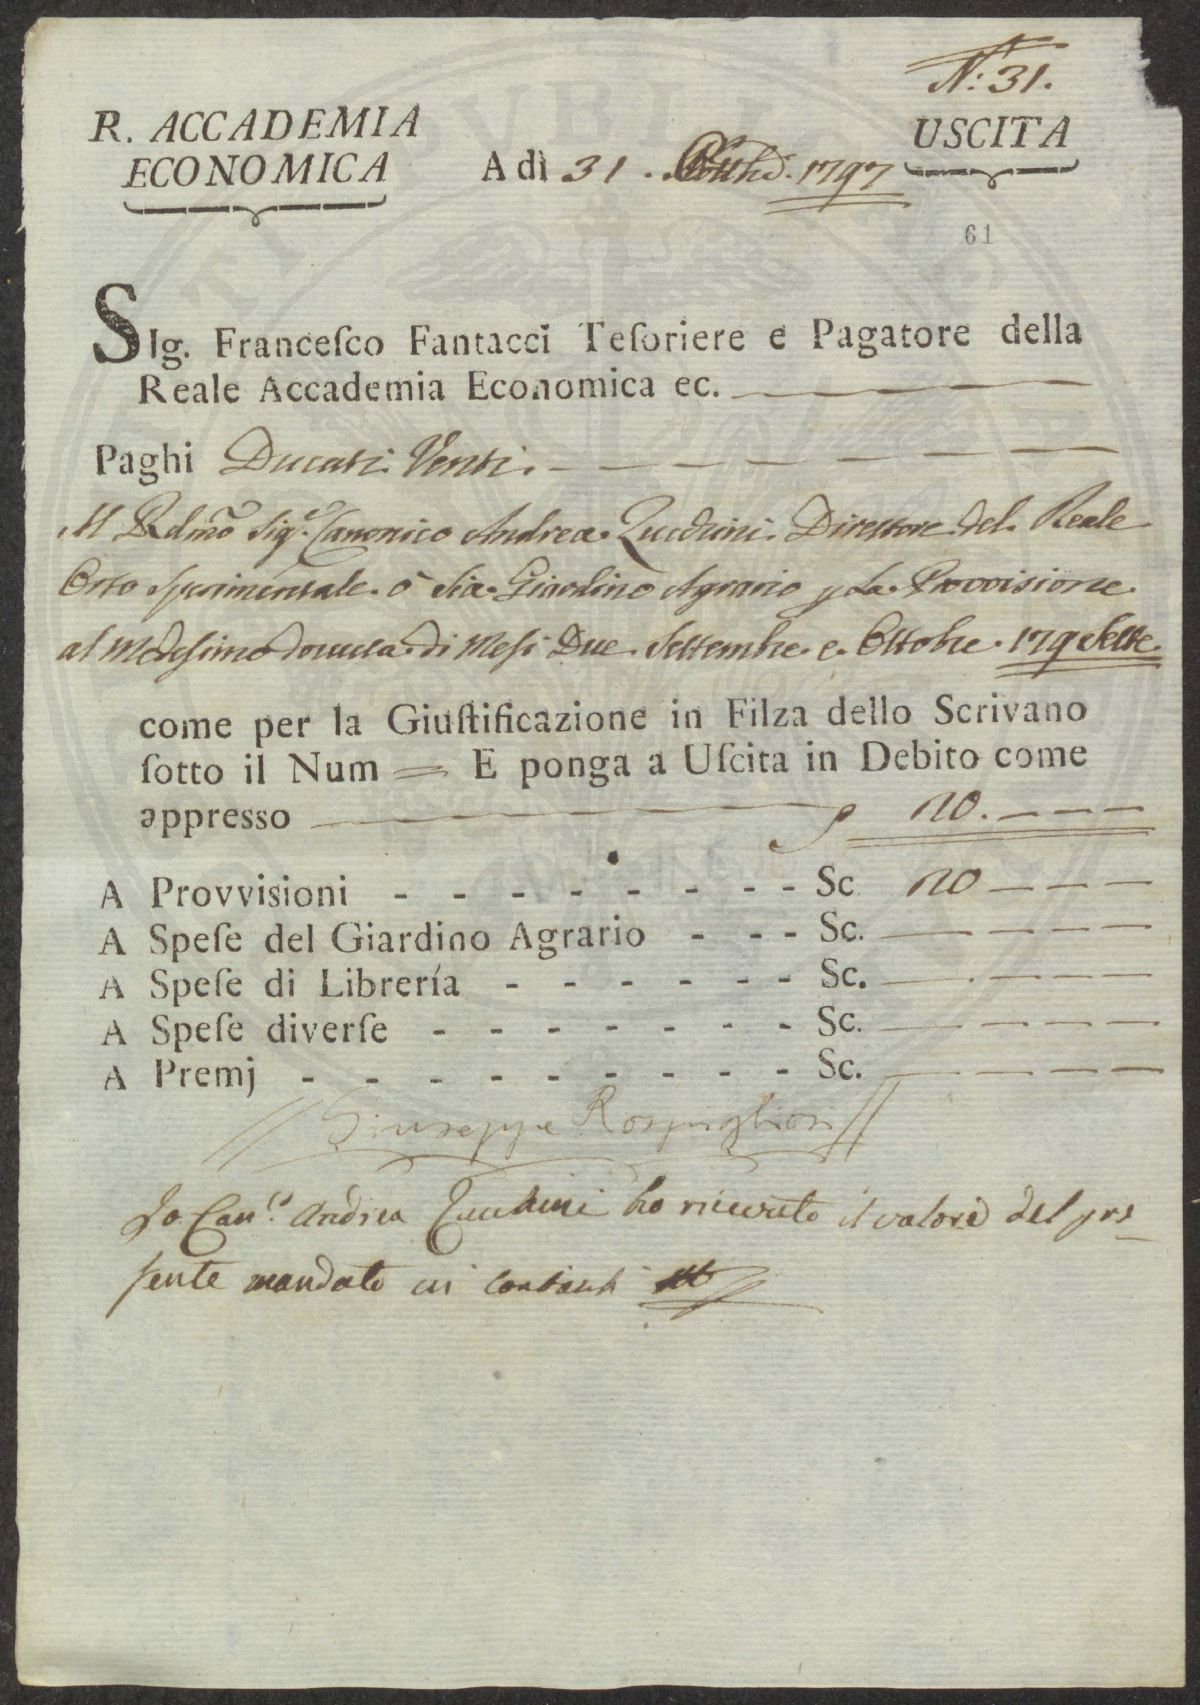 N.° 31.
R. ACCADEMIA
ECONOMICA
A dì 31. Ottobre. 1797
USCITA
61
SIg. Franceſco Fantacci Teſoriere e Pagatore della
Reale Accademia Economica ec.
Paghi Ducati Venti.
Al Rdmo Sigr. Canonico Andrea Zucchini Direttore del Reale
Orto Sperimentale. ò sia Giardino Agrario p. La Provvisione
al Medesimo dovuta di Mesi Due Settembre e Ottobre. 179Sette.
come per la Giuſtificazione in Filza dello Scrivano
ſotto il Num = E ponga a Uſcita in Debito come
appresso 20. - - -
A Provvisioni - - - - - - - - Sc 20 - - -
A Speſe del Giardino Agrario - - - Sc. - - - -
A Speſe di Librería - - - - - - Sc. - - - -
A Speſe diverſe - - - - - - - Sc. - - - -
A Premj - - - - - - - - - Sc. - - - -
Giuseppe Rospigliosi
Io Can.co Andrea Zucchini ho ricevuto il valore del pre-
sente mandato in contanti